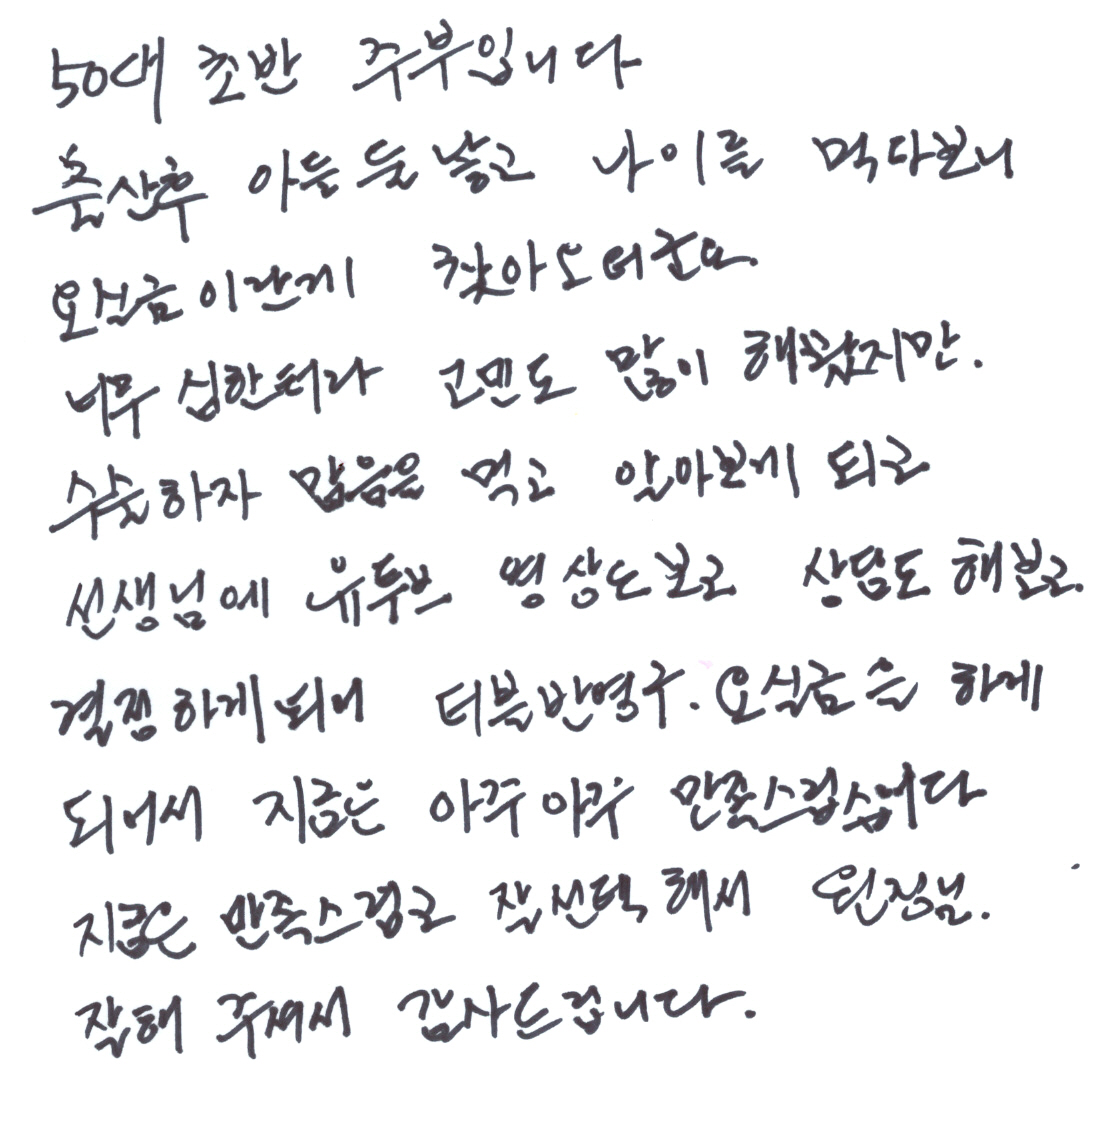 50대 초반 주부입니다
출산후 아든 둘 낳고 나이를 먹다보니
요실금이란게 찾아오더군요.
너무 심한터라 고민도 많이 해왔지만.
수술하자 맘음은 먹고 알아보게 되고
선생님에 유투브 영상도보고 상담도 해보고.
결정하게되어 더블반영구. 요실금 술 하게
되어서 지금은 아주 아주 만족스럽습니다
지금은 만족스럽고 잘 선택 해서 원장님.
잘해 주셔서 감사드립니다.